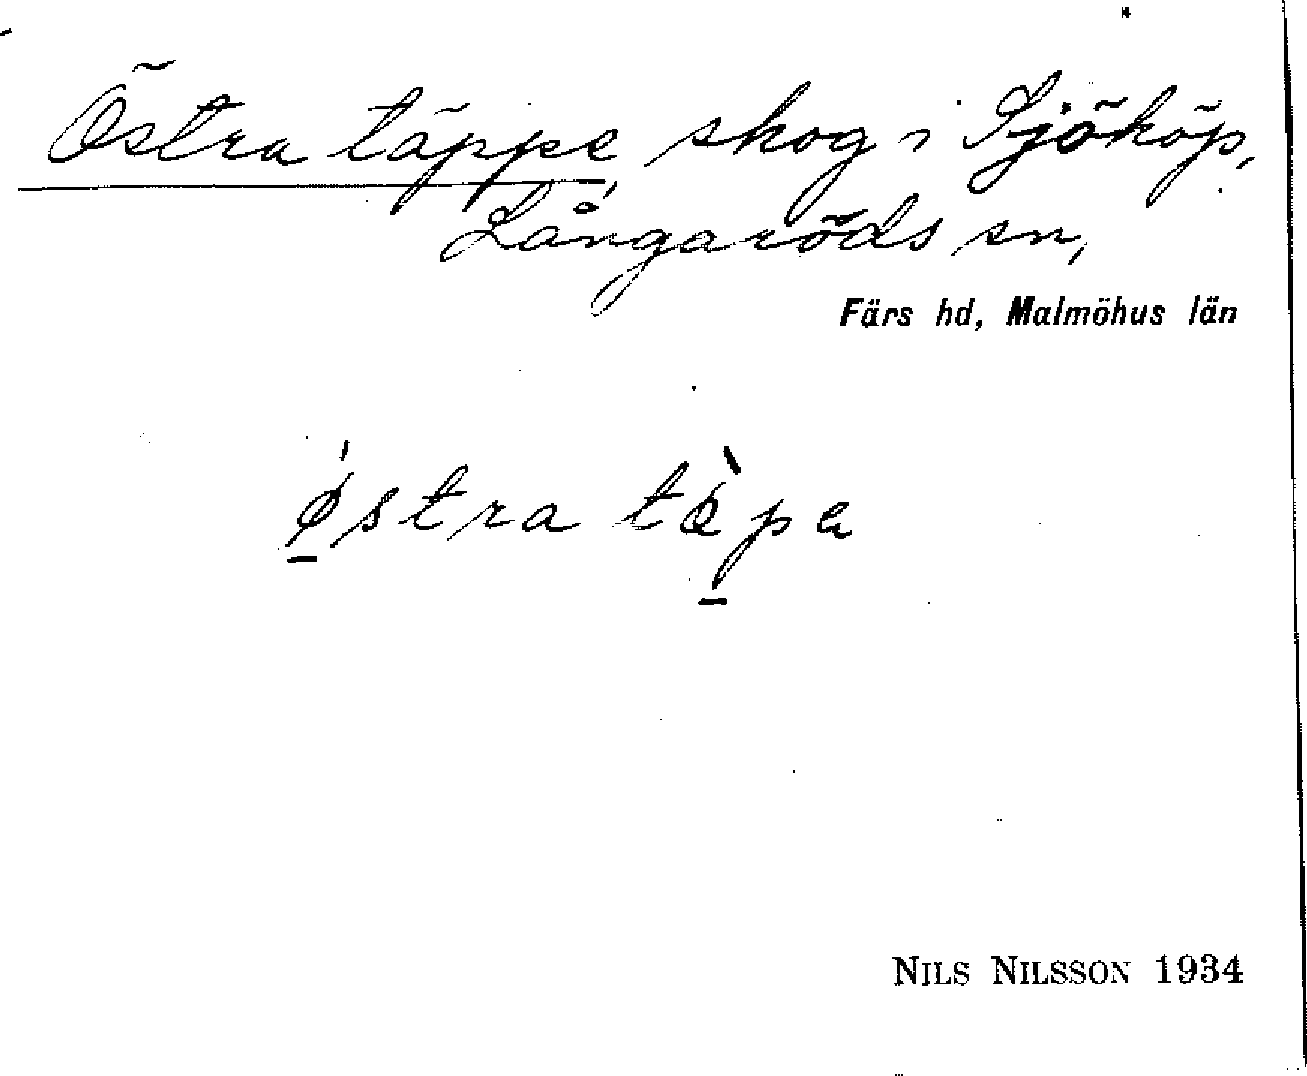 Östra täppe skog i Sjököp,
Långaröds sn,
Färs hd, Malmöhus län
ǿstra tæ̀pa
NILS NILSSON 1934